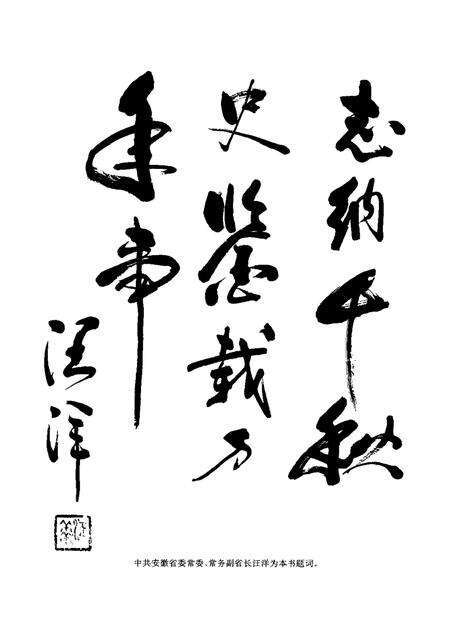 志纳千秋
史鉴载万
年事
汪洋
中共安徽省委常委、常务副省长汪洋为本书题词。